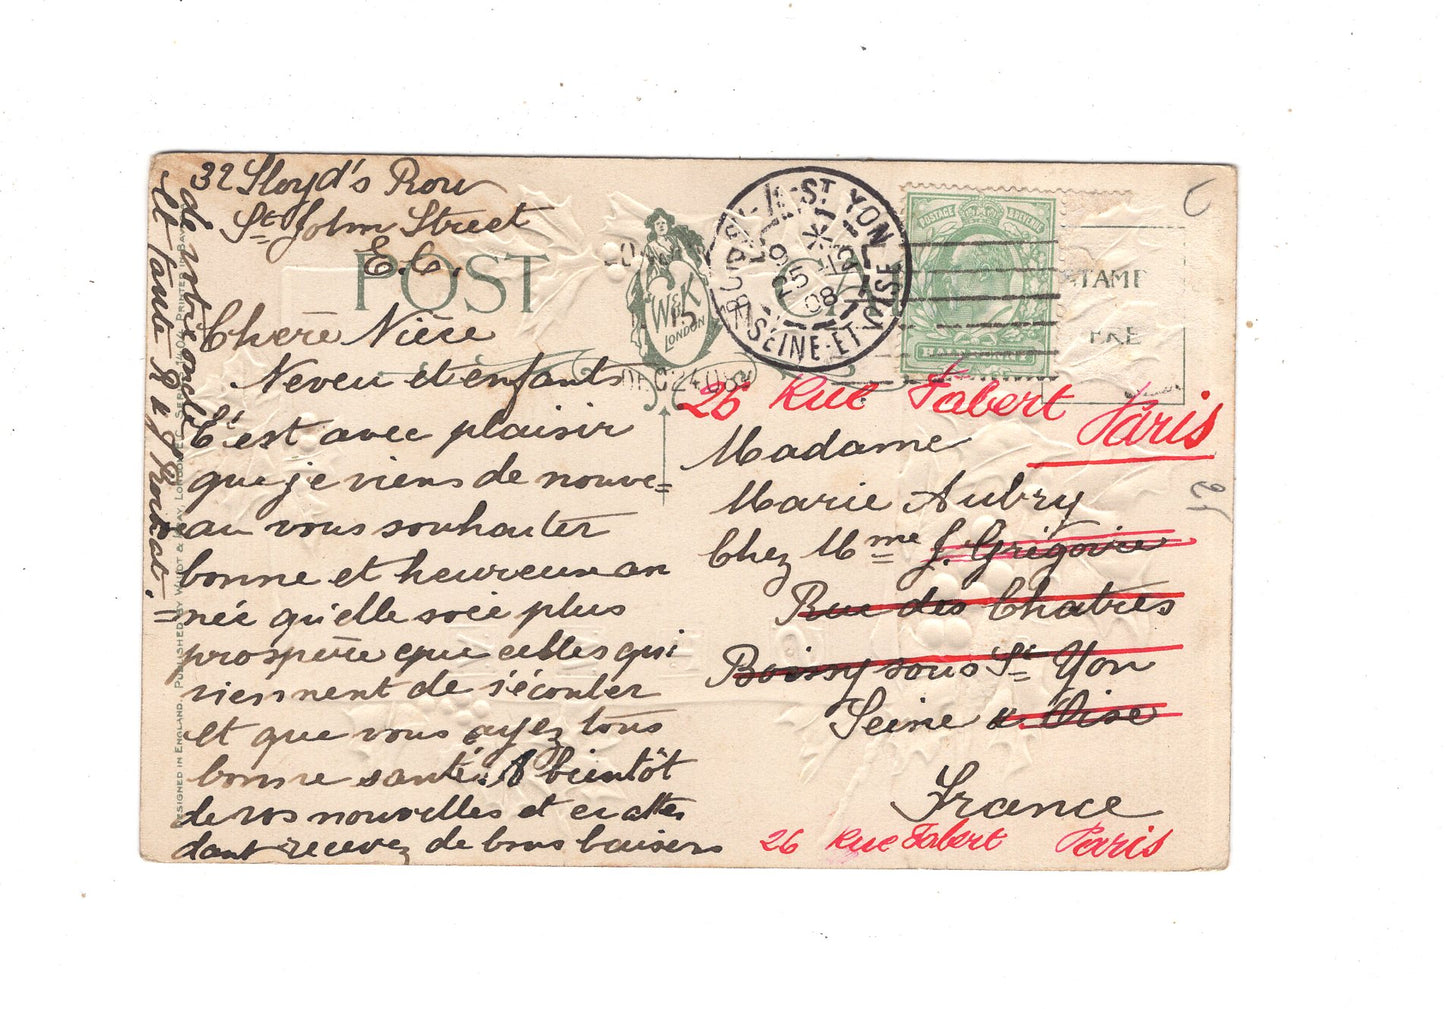 32 Lloyd's Row
St John Street
E.C.
POST
W&K
LONDON
Chère Nièce
Neveu et enfants
C'est avec plaisir
que je viens de nouve=
au vous souhaiter
bonne et heureuse an
née qu'elle soie plus
prospère que celles qui
viennent de s'écouler
et que vous ayez tous
bonne santé. A bientôt
de vos nouvelles et en atten
dant recevez de bons baisers
de votre oncle
et tante
BOISSY-LA-ST YON
SEINE-ET-OISE
25
08
DEC 24 08
POSTAGE & REVENUE
STAMP
26 Rue Fabert Paris
Madame
Marie Aubry
Chez Mme J. Grégoire
Rue des Chatres
Boissy sous St Yon
Seine & Oise
France
26 Rue Fabert Paris